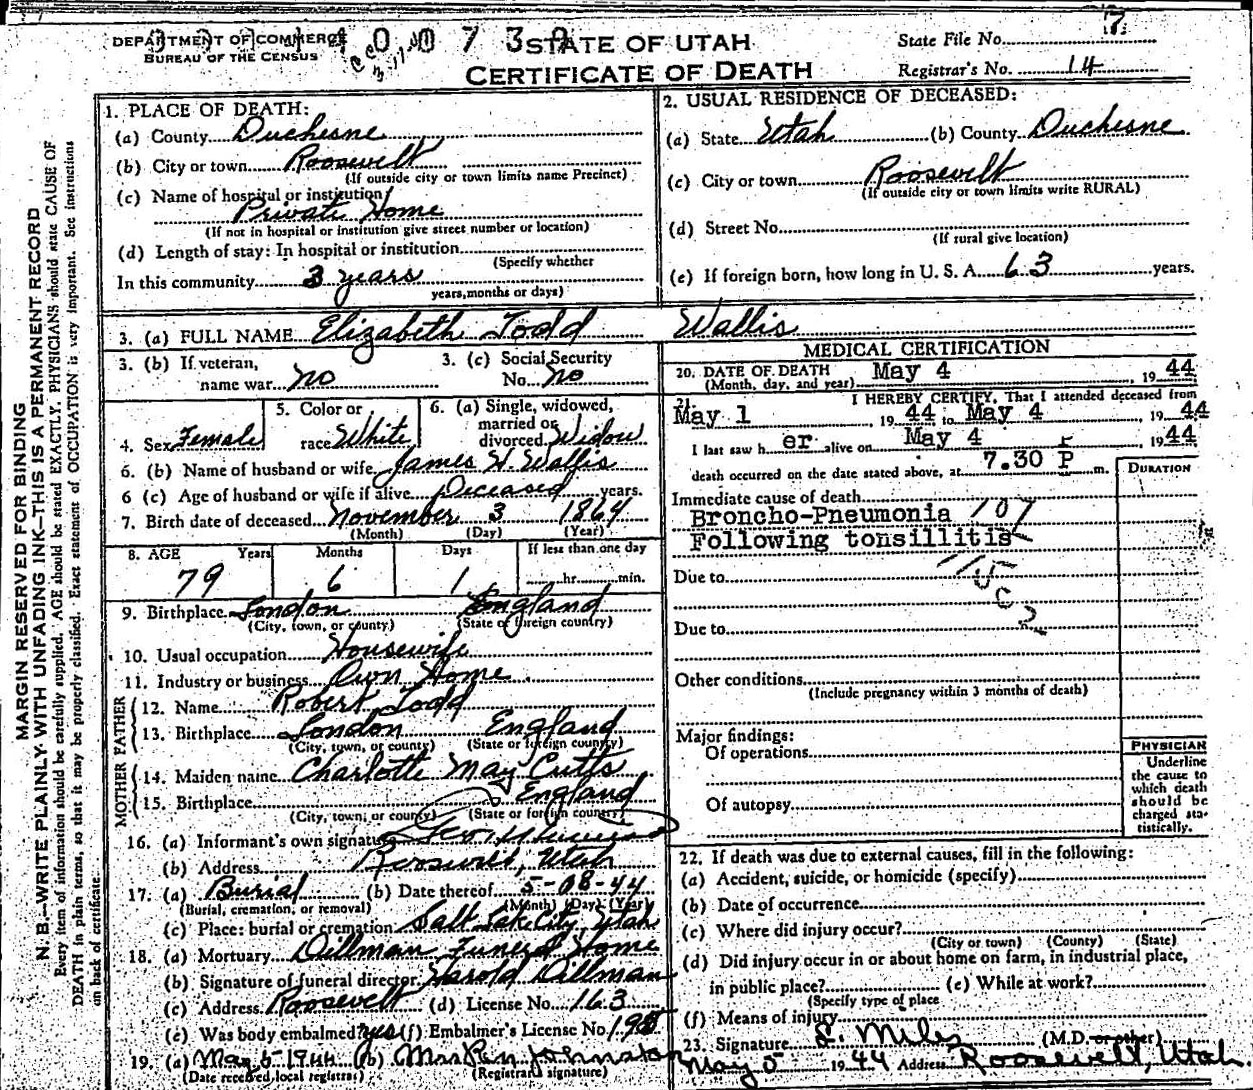 DEPARTMENT OF COMMERCE
BUREAU OF THE CENSUS
STATE OF UTAH
CERTIFICATE OF DEATH
State File No. 7
Registrar's No. 14
MARGIN RESERVED FOR BINDING
N. B.—WRITE PLAINLY WITH UNFADING INK—THIS IS A PERMANENT RECORD
Every item of information should be carefully supplied. AGE should be stated EXACTLY. PHYSICIANS should state CAUSE OF
DEATH in plain terms, so that it may be properly classified. Exact statement of OCCUPATION is very important. See instructions
on back of certificate.
1. PLACE OF DEATH:
(a) County Duchesne
(b) City or town Roosevelt
(If outside city or town limits name Precinct)
(c) Name of hospital or institution
Private Home
(If not in hospital or institution give street number or location)
(d) Length of stay: In hospital or institution
(Specify whether
In this community 3 years
years, months or days)
2. USUAL RESIDENCE OF DECEASED:
(a) State Utah (b) County Duchesne
(c) City or town Roosevelt
(If outside city or town limits write RURAL)
(d) Street No.
(If rural give location)
(e) If foreign born, how long in U. S. A. 63 years.
3. (a) FULL NAME Elizabeth Todd Wallis
3. (b) If veteran,
name war no
3. (c) Social Security
No. no
4. Sex Female
5. Color or
race White
6. (a) Single, widowed,
married or
divorced Widow
6. (b) Name of husband or wife James H. Wallis
6 (c) Age of husband or wife if alive Deceased years.
7. Birth date of deceased November 3 1864
(Month) (Day) (Year)
8. AGE Years Months Days If less than one day
79 6 1 hr. min.
9. Birthplace London England
(City, town, or county) (State or foreign country)
10. Usual occupation Housewife
11. Industry or business Own Home
FATHER
12. Name Robert Todd
13. Birthplace London England
(City, town, or county) (State or foreign country)
MOTHER
14. Maiden name Charlotte May Cutts
15. Birthplace England
(City, town, or county) (State or foreign country)
16. (a) Informant's own signature
(b) Address Roosevelt, Utah
17. (a) Burial (b) Date thereof 5-08-44
(Burial, cremation, or removal) (Month) (Day) (Year)
(c) Place: burial or cremation Salt Lake City, Utah
18. (a) Mortuary Dillman Funeral Home
(b) Signature of funeral director Harold Dillman
(c) Address Roosevelt (d) License No. 163
(e) Was body embalmed? yes (f) Embalmer's License No.
19. (a) May 5-1944 (b) Mrs Johnston
(Date received local registrar) (Registrar's signature)
MEDICAL CERTIFICATION
20. DATE OF DEATH May 4, 1944
(Month, day, and year)
21. I HEREBY CERTIFY, That I attended deceased from
May 1, 1944 to May 4 1944
I last saw h er alive on May 4 1944
death occurred on the date stated above, at 7.30 P m.
DURATION
Immediate cause of death
Broncho-Pneumonia 107
Following tonsillitis
Due to
Due to
Other conditions
(Include pregnancy within 3 months of death)
Major findings:
Of operations
Of autopsy
PHYSICIAN
Underline
the cause to
which death
should be
charged sta-
tistically.
22. If death was due to external causes, fill in the following:
(a) Accident, suicide, or homicide (specify)
(b) Date of occurrence
(c) Where did injury occur?
(City or town) (County) (State)
(d) Did injury occur in or about home on farm, in industrial place,
in public place? (e) While at work?
(Specify type of place
(f) Means of injury
23. Signature L. Miles (M.D. or other)
May 5 1944 Address Roosevelt, Utah